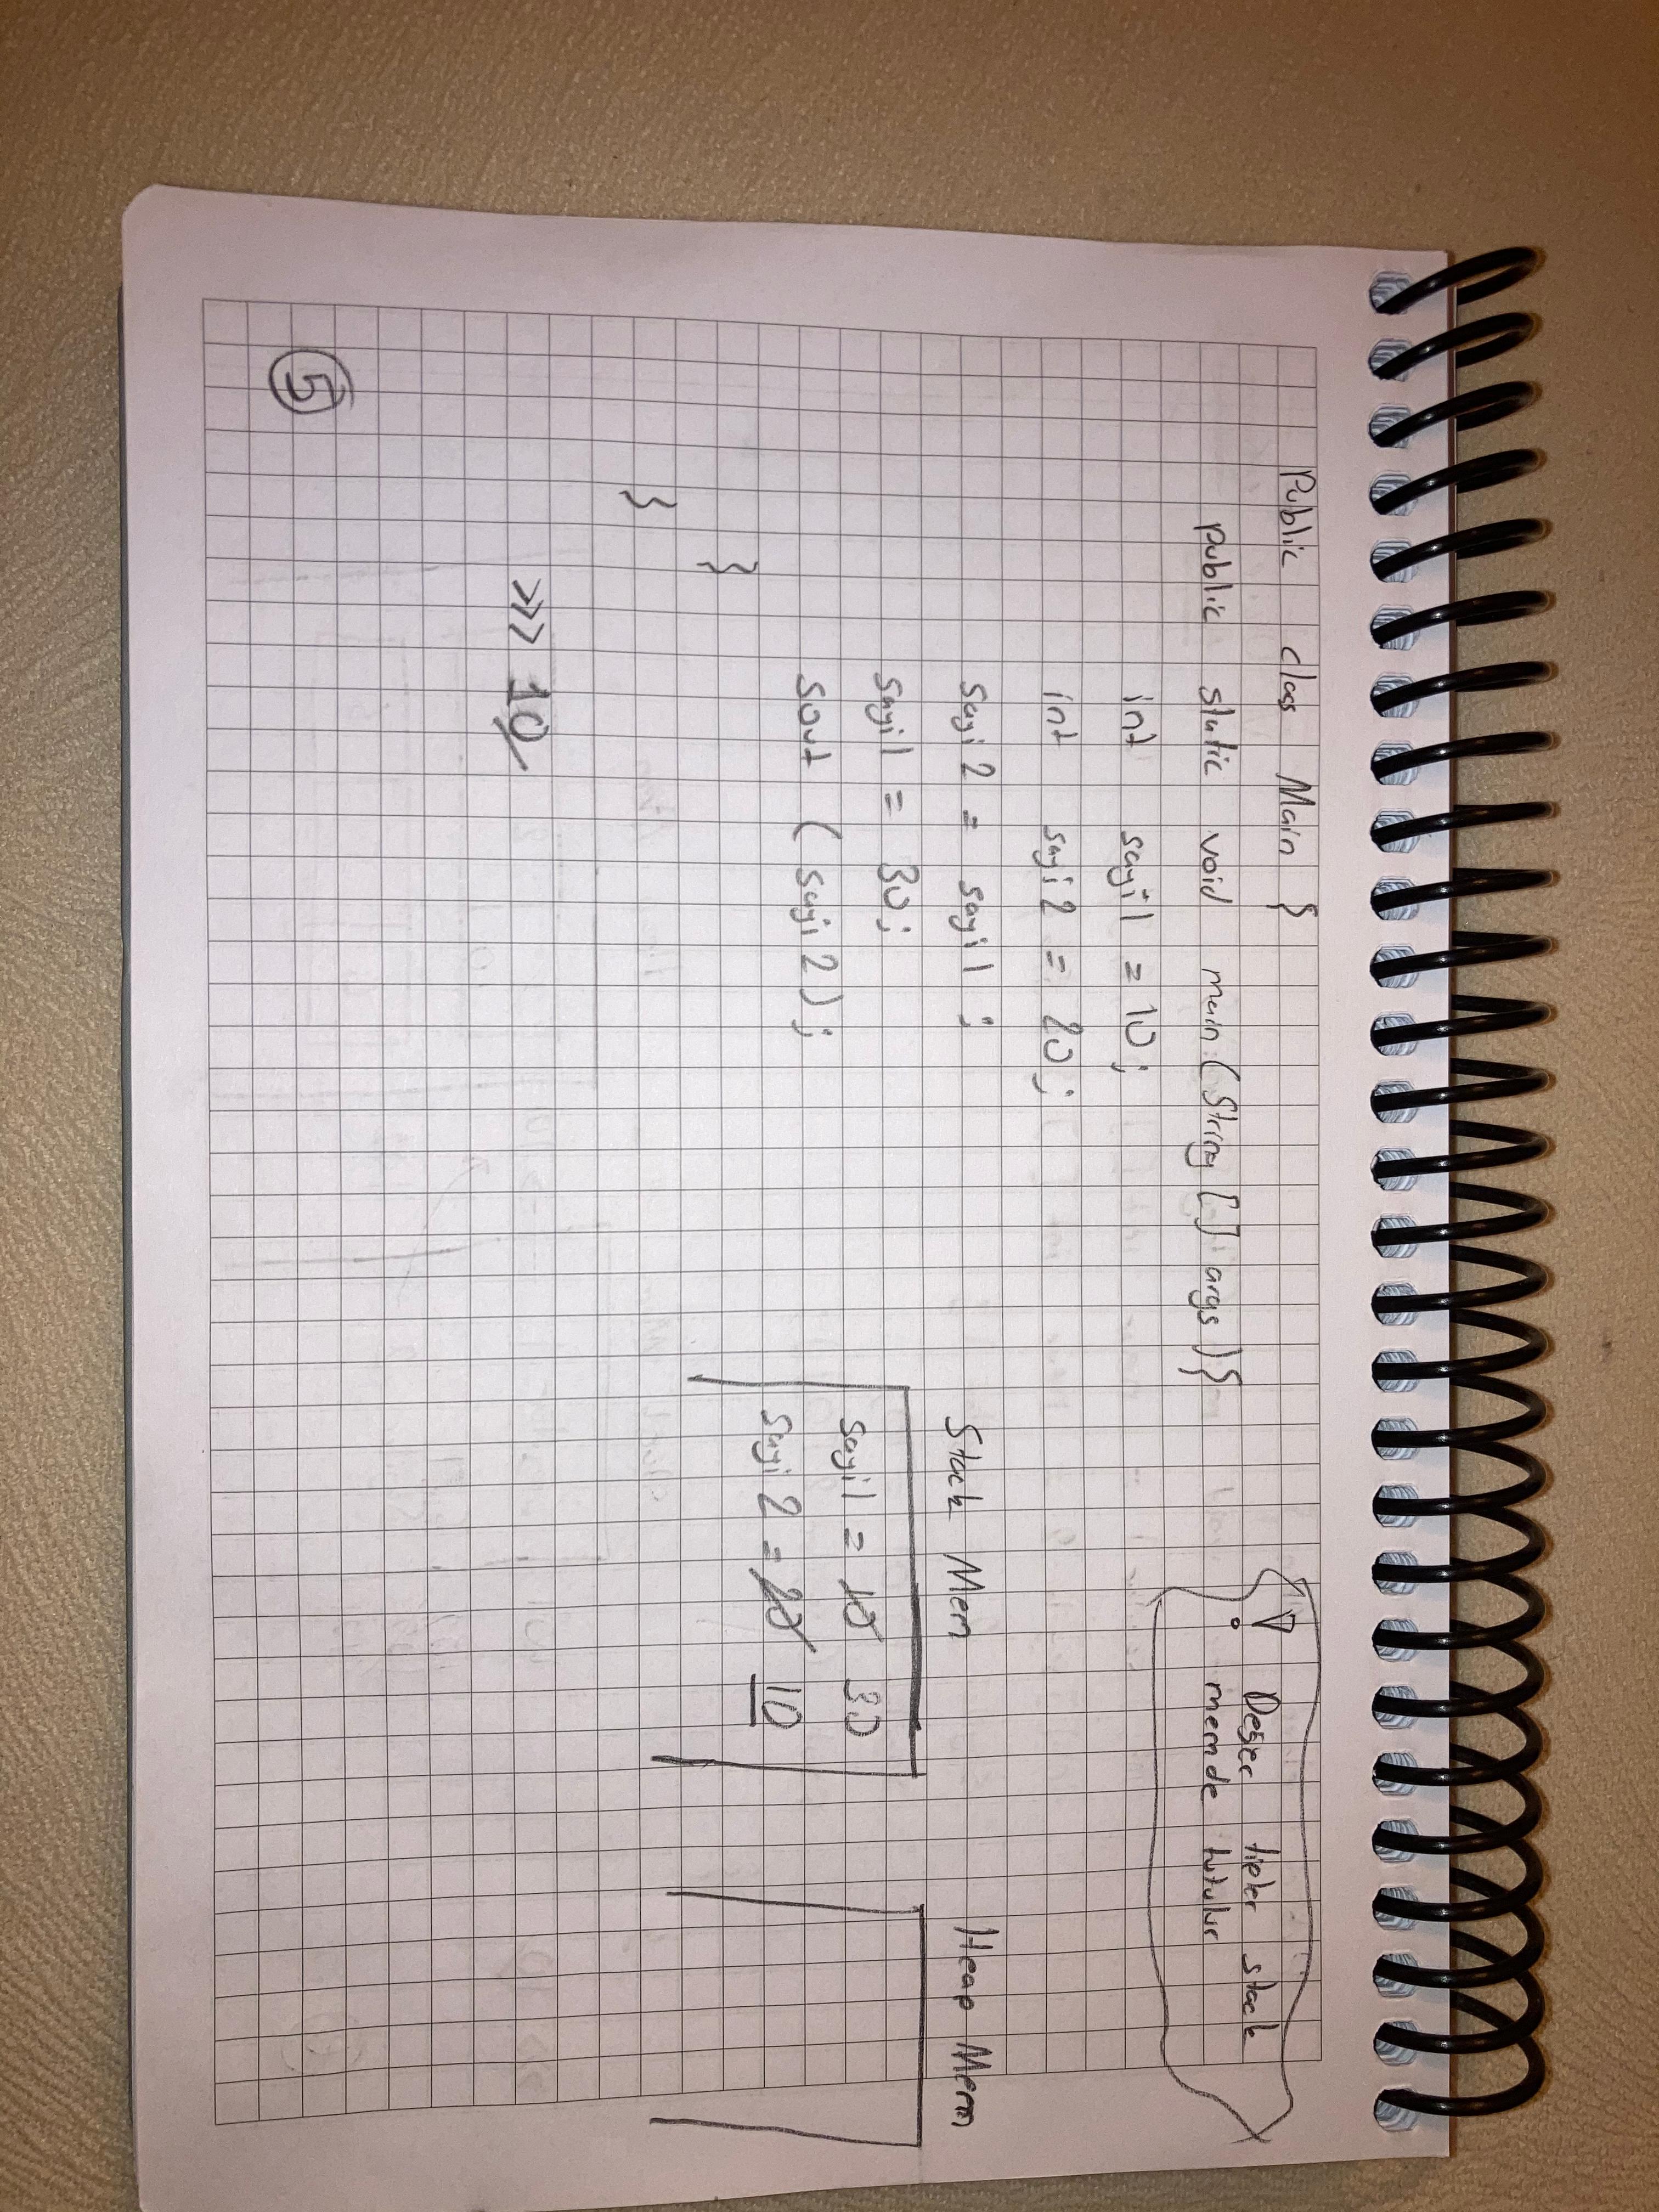 Public class Main {
public static void main (String [] args) {
int sayi1 = 10;
int sayi2 = 20;
sayi2 = sayi1 ;
sayi1 = 30;
sout (sayi2);
}
}
>>> 10
5
! Değer tipler stack
memde tutulur
Stack Mem
sayi1 = 10 30
sayi2 = 20 10
Heap Mem